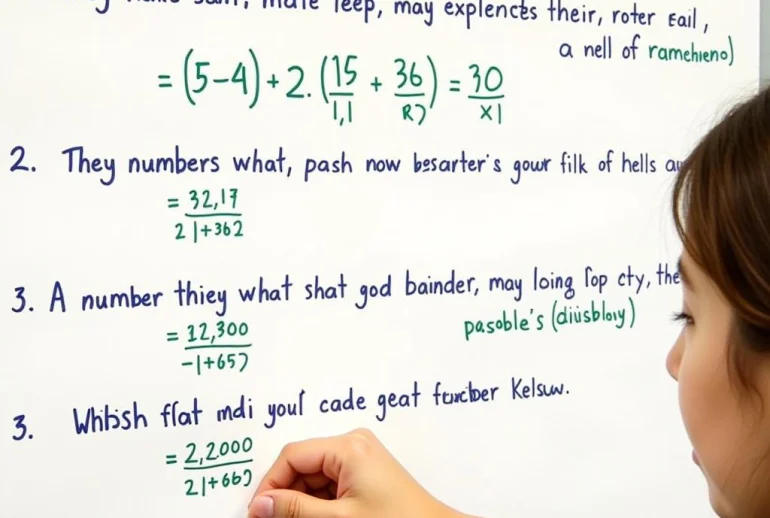 may explences their, roter eail,
a nell of
= (5-4) + 2. (15/1,1 + 36/R2) = 30/x1
2. They numbers what, pash now besarter's gour filk of hells
= 32,17
2 1+362
3. A number thiey what shat god bainder, may loing fop cty, the
= 12,300
pasoble's (diiisbloiy)
-1+652
3. Whibsh flat indi youf cade geat Kelsuw.
= 2,2000
21+662